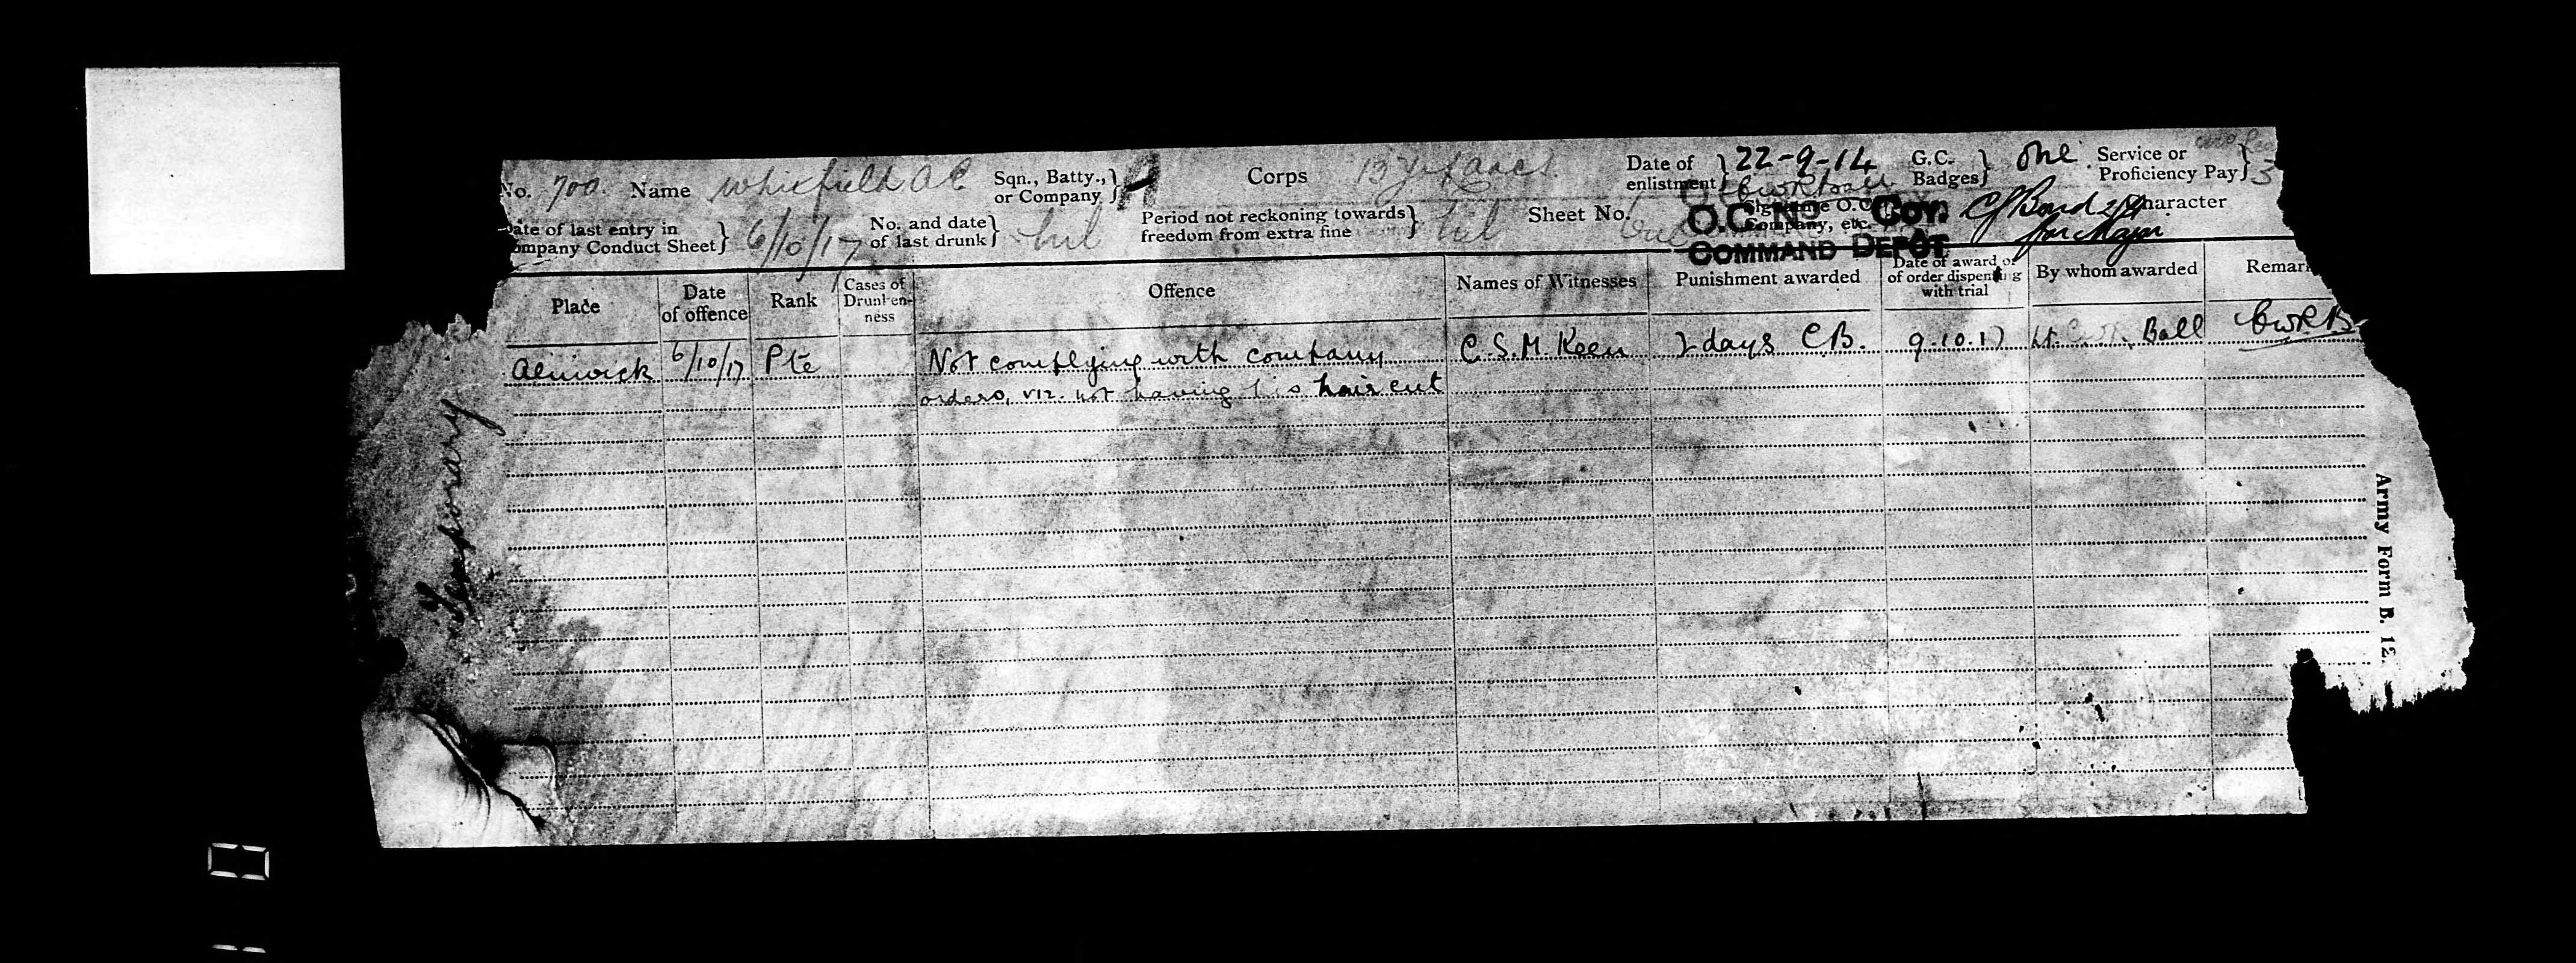 No. 700. Name Whitfield A E Sqn., Batty., or Company A Corps Date of enlistment 22-9-14 G.C. Badges one Service or Proficiency Pay 3
Date of last entry in Company Conduct Sheet 6/10/17 No. and date of last drunk nil Period not reckoning towards freedom from extra fine nil Sheet No. Signature O.C. Company, etc. Character
O.C. No Coy.
COMMAND DEPÔT
for Major
Place Date of offence Rank Cases of Drunkenness Offence Names of Witnesses Punishment awarded Date of award or of order dispensing with trial By whom awarded Remar
Alnwick 6/10/17 Pte Not complying with company C.S.M. Keen 2 days C.B. 9.10.17 Lt. Ball CWRB
orders, viz. not having his hair cut
Temporary
Army Form B. 12